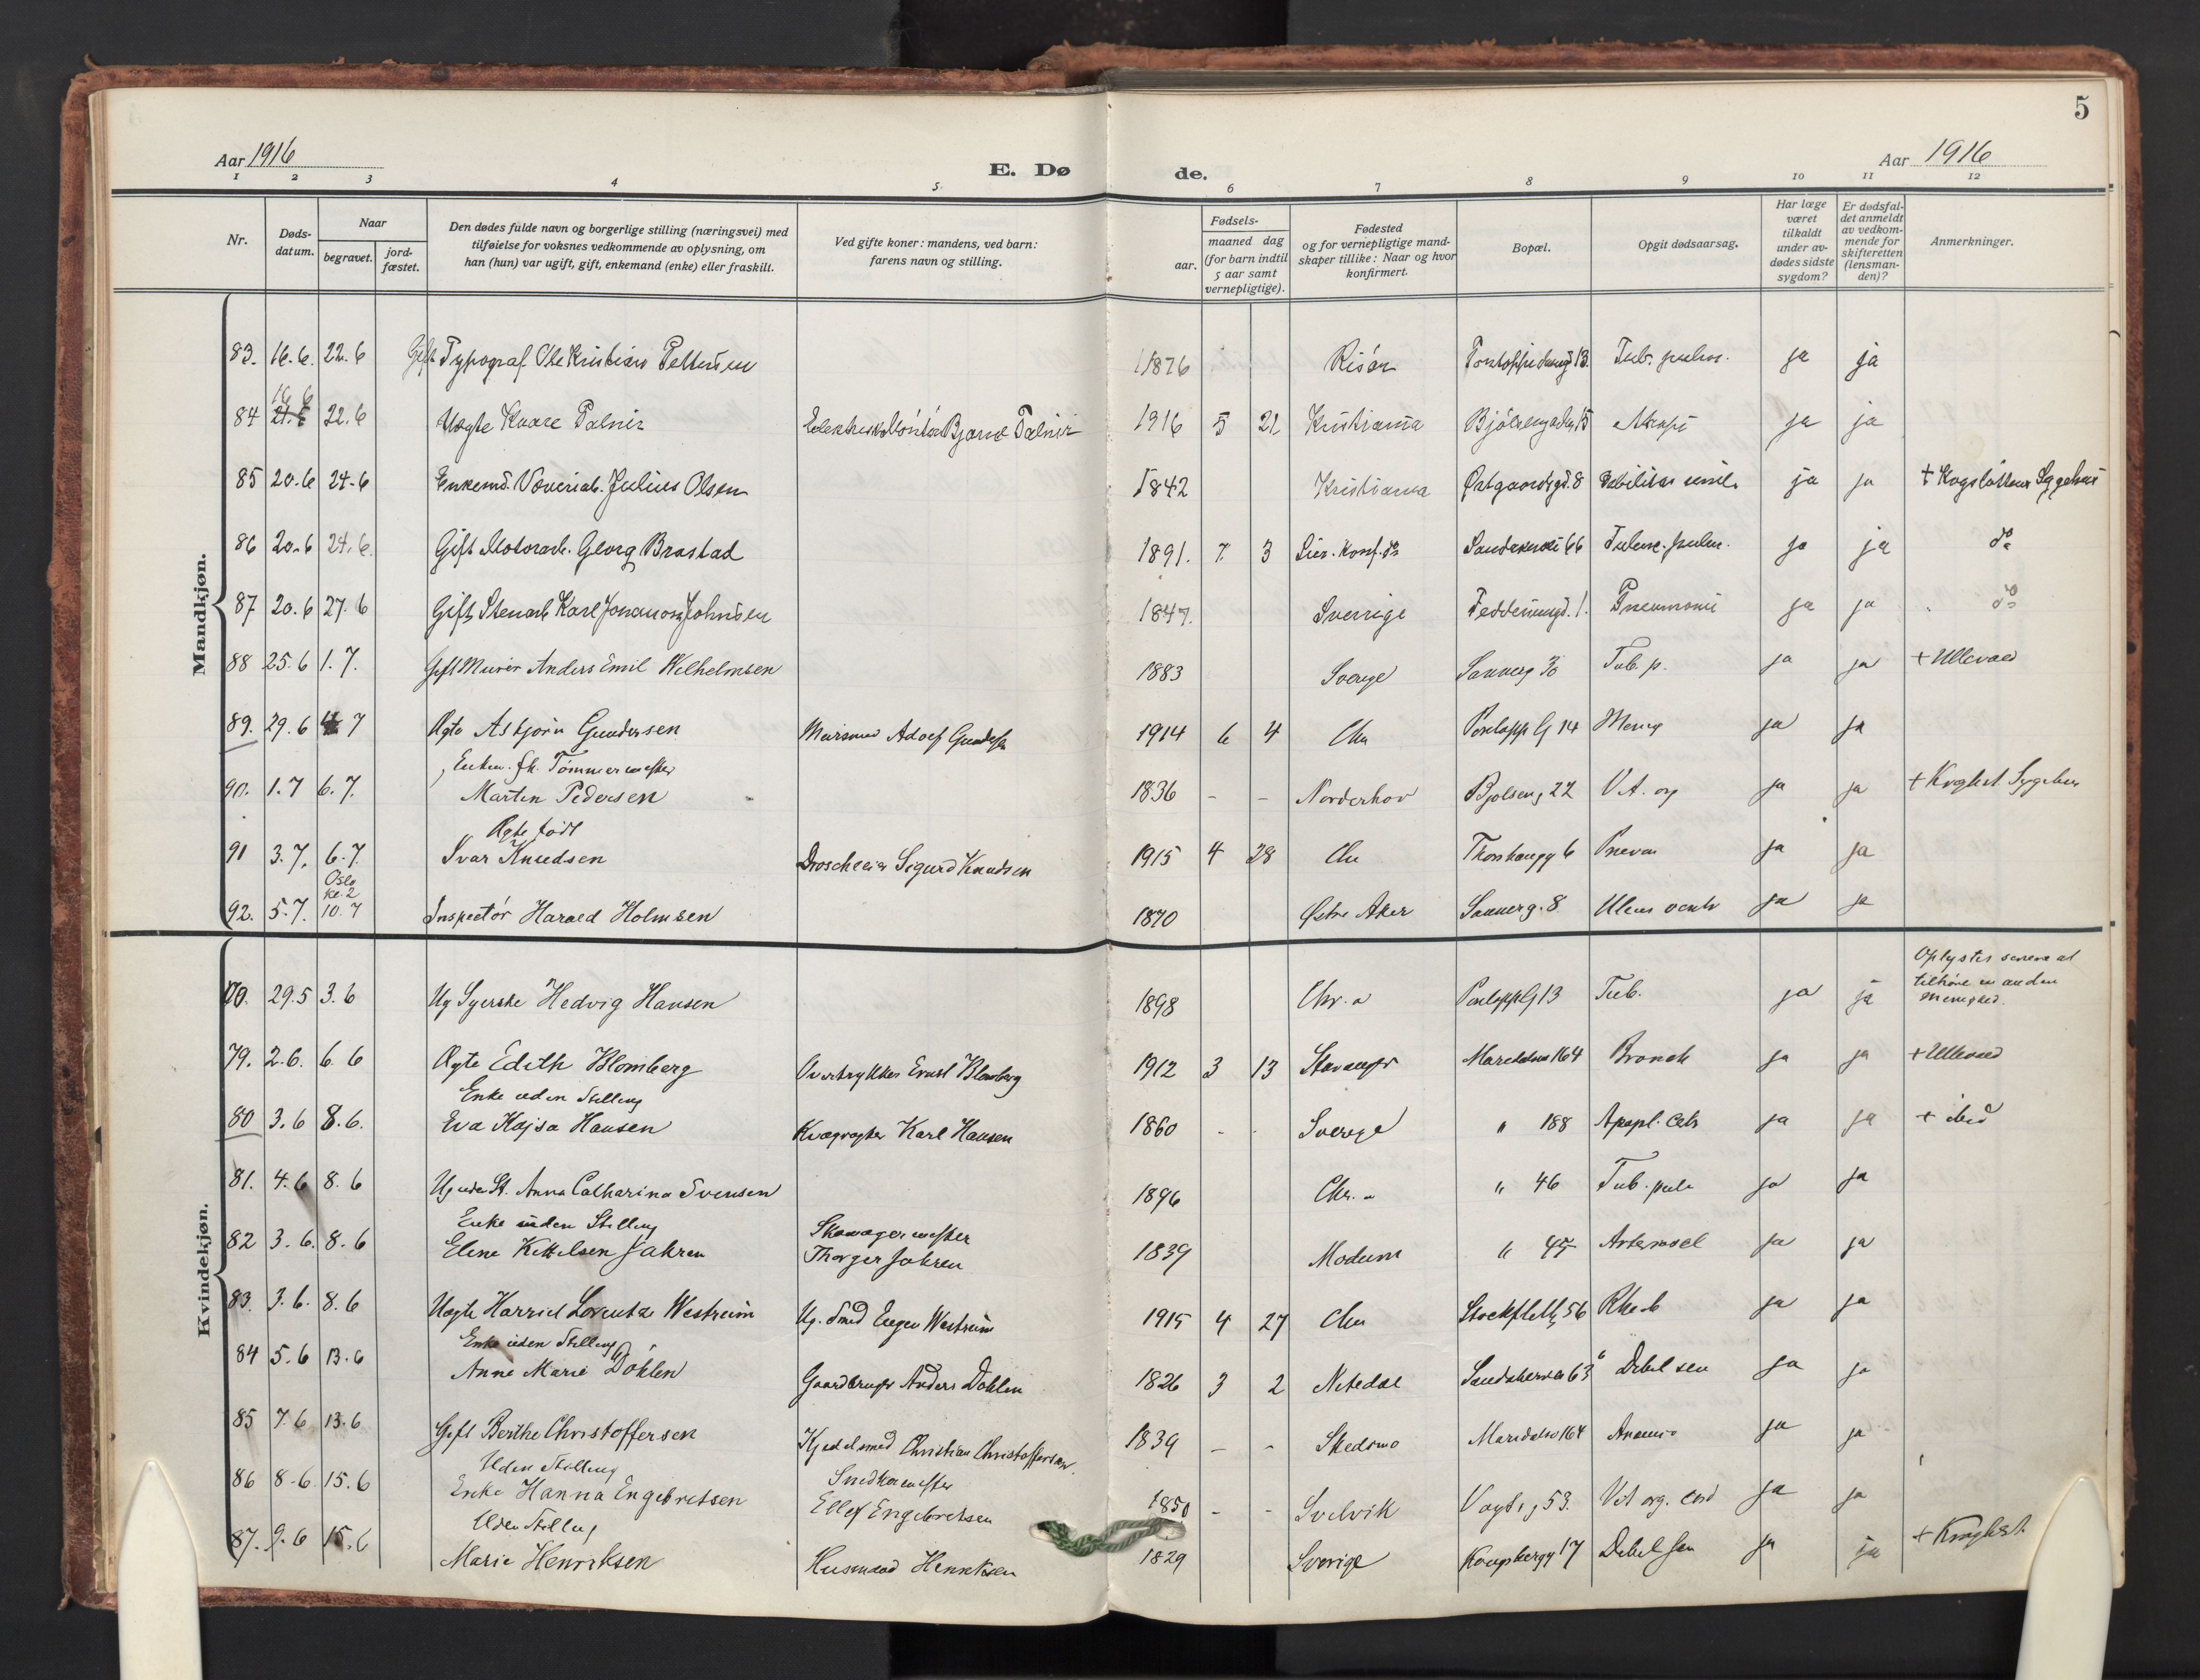 5
Aar 1916
E. Dø de.
Aar 1916
1 2 3 4 5 6 7 8 9 10 11 12
Nr.
Døds-
datum.
Naar
begravet.
jord-
fæstet.
Den dødes fulde navn og borgerlige stilling (næringsvei) med
tilføielse for voksnes vedkommende av oplysning, om
han (hun) var ugift, gift, enkemand (enke) eller fraskilt.
Ved gifte koner: mandens, ved barn:
farens navn og stilling.
Fødsels-
aar.
maaned dag
(for barn indtil
5 aar samt
vernepligtige).
Fødested
og for vernepligtige mand-
skaper tillike: Naar og hvor
konfirmert.
Bopæl.
Opgit dødsaarsag.
Har læge
været
tilkaldt
under av-
dødes sidste
sygdom?
Er dødsfal-
det anmeldt
av vedkom-
mende for
skifteretten
(lensman-
den)?
Anmerkninger.
Mandkjøn.
83. 16.6. 22.6 Gift Typograf Ole Kristian Pettersen 1876 Risør 13. Tub. pulm. ja ja
16 6
84 22.6 Uegte Kaare Palnir Bjarne Palnir 1916 5 21 Kristiania 15 ja ja
85 20.6 24.6 Enkemd. Julius Olsen 1842 Kristiania Østgaardsgd. 8 Debilitas senil. ja ja + Krogstøttens Sygehus
86 20.6 24.6. Gift Motorarb. Georg Brastad 1891. 7. 3 Lier. Konf. do 66 pulm. ja ja do
87 20.6 27.6 Gift Stenarb Karl Johnsen 1847. Sverrige 1. Pneumoni ja ja do
88 25.6 1.7. Gift Murer Anders Emil Wilhelmsen 1883 Sverige Sannerg 30 Tub. p. ja ja + Ullevaal
89. 29.6 7 Ægte Asbjørn Gundersen Adolf Gundersen 1914 6 4 Chr Pontopp G 14 Mening ja ja
Enkem. fh. Tømmermester
90. 1.7 6.7. Martin Pedersen 1836 - - Norderhov Bjølseng 22 V.A. org ja ja + Krogst Sygehus
Ægte født
91 3.7. 6.7. Ivar Knudsen Sigurd Knudsen 1915 4 28 Chr Thorshaugg 6 ja ja
Oslo
kl. 2
92. 5.7. 10.7 Inspektør Harald Holmsen 1870 Østre Aker Sannerg. 8 Ulcus ventr ja ja
Kvindekjøn.
Oplystes senere at
tilhøre en anden
Menighed.
29.5 3.6 Ug Syerske Hedvig Hansen 1898 Chr.a Pontopp G 13 Tub. ja ja
79. 2.6. 6.6 Ægte Edith Blomberg Overtrykker Ernst Blomberg 1912 3 13 Stavanger Maridalsv 164 Bronch ja ja + Ullevaal
Enke uden Stilling
80 3.6 8.6. Eva Kajsa Hansen Kvægvogter Karl Hansen 1860 - - Sverige " 188 Apopl. Cebr ja ja + ibid
81. 4.6 8.6 Ug uden St. Anna Catharina Svensen 1896 Chr. a " 46 Tub. pulm ja ja
Enke uden Stilling Skomagermester
82 3.6. 8.6 Elene Kittelsen Jahren Thorger Jahren 1839 Modum " 45 ja ja
83. 3.6. 8.6 Uægte Harriet Lorentza Westreim Ug. Smed Eugen Westreim 1915 4 27 Chr Stockflethg 56 ja ja
Enke uden Stilling
84 5.6 13.6 Anne Marie Døhlen Gaardbruger Anders Døhlen 1826 3 2 Nitedal Sandakerv 63 b Debil sen ja ja
85 7.6 13.6 Gift Berthe Christoffersen Kjedelsmed Christian Christoffersen 1839 - - Skedsmo Maridalsv 164 Anæmi ja ja
Uden Stilling Snedkermester
86 8.6 15.6 Enke Hanna Engebretsen Ellef Engebretsen 1850 - - Svelvik Vogts g 53. Vit org. cord ja ja
Uden Stilling
87. 9.6 15.6 Marie Henriksen Husmand Henriksen 1829 Sverige 17 Debil sen ja ja + Krogst.